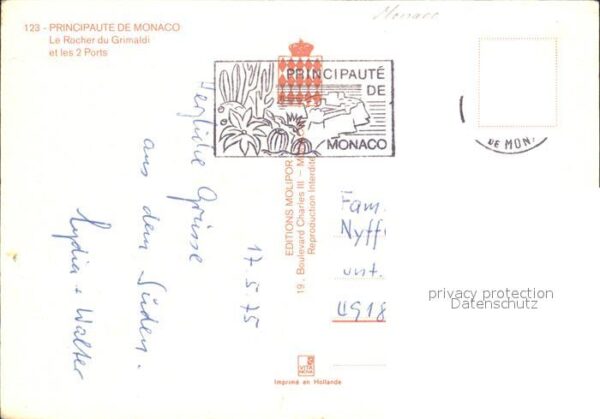 123 - PRINCIPAUTE DE MONACO
Le Rocher du Grimaldi
et les 2 Ports
Monaco
PRINCIPAUTÉ
DE
MONACO
DE MON
Herzliche Grüsse
aus dem Süden.
Lydia + Walter
17.5.75
EDITIONS MOLIPOR
19, Boulevard Charles III - M
Reproduction Interdite
Fam.
Nyff
unt.
4918
privacy protection
Datenschutz
VITA
NOVA
Imprimé en Hollande